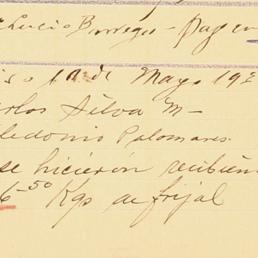 Lucio Borrego - pag en
so 1o de Mayo 192
rlos Silva M-
ledonio Palomares
se hicierón recibien
6-50 Kgs de frijal